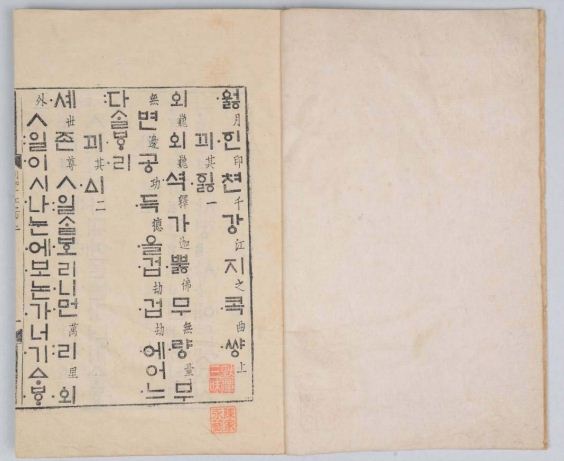 ᅌᅯᇙ月ᅙᅵᆫ印쳔千강江지之콕曲썅上
끠其ᅙᅵᇙ一
외巍외巍셕釋가迦뿌ᇙ佛무無량量무
無변邊공功득德을겁劫겁劫에어느
다ᄉᆞᆯᄫᆞ리
끠其ᅀᅵ二
셰世존尊ㅅ일ᄉᆞᆯᄫᅩ리니먼萬리里외
外ㅅ일이시나눈에보논가너기ᅀᆞᄫᆞ